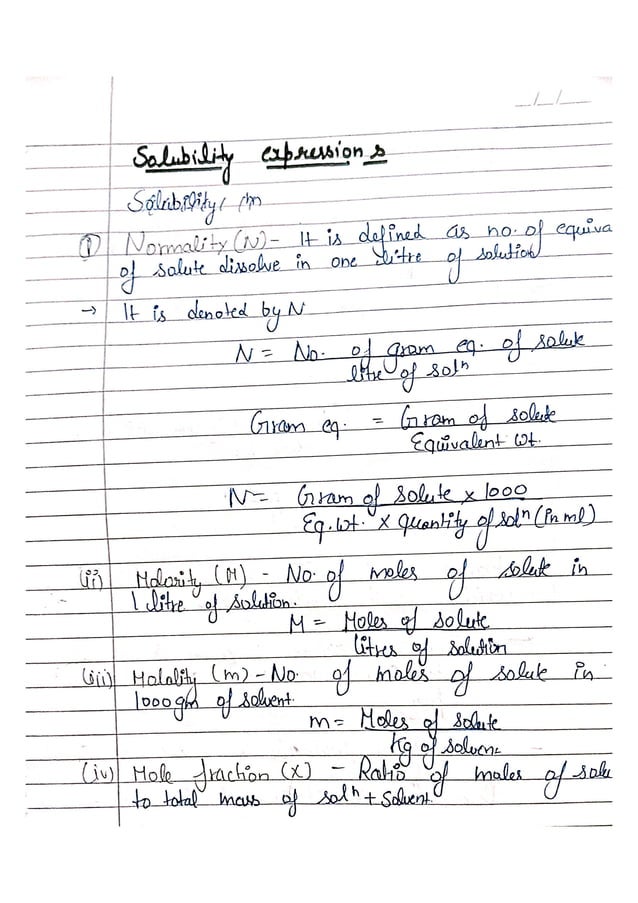 __/__/__
Solubility expressions
Solubility / m
① Normality (N) - It is defined as no. of equiva
of solute dissolve in one litre of solution
→ It is denoted by N
N = No. of gram eq. of solute
litre of solⁿ
Gram eq. = Gram of solute
Equivalent wt.
N = Gram of solute × 1000
Eq. wt. × Quantity of solⁿ (in ml)
(ii) Molarity (M) - No. of moles of solute in
1 litre of solution.
M = Moles of solute
litres of solution
(iii) Molality (m) - No. of moles of solute in
1000 gm of solvent.
m = Moles of solute
Kg of solvent
(iv) Mole fraction (X) - Ratio of moles of solu
to total mass of solⁿ + Solvent.